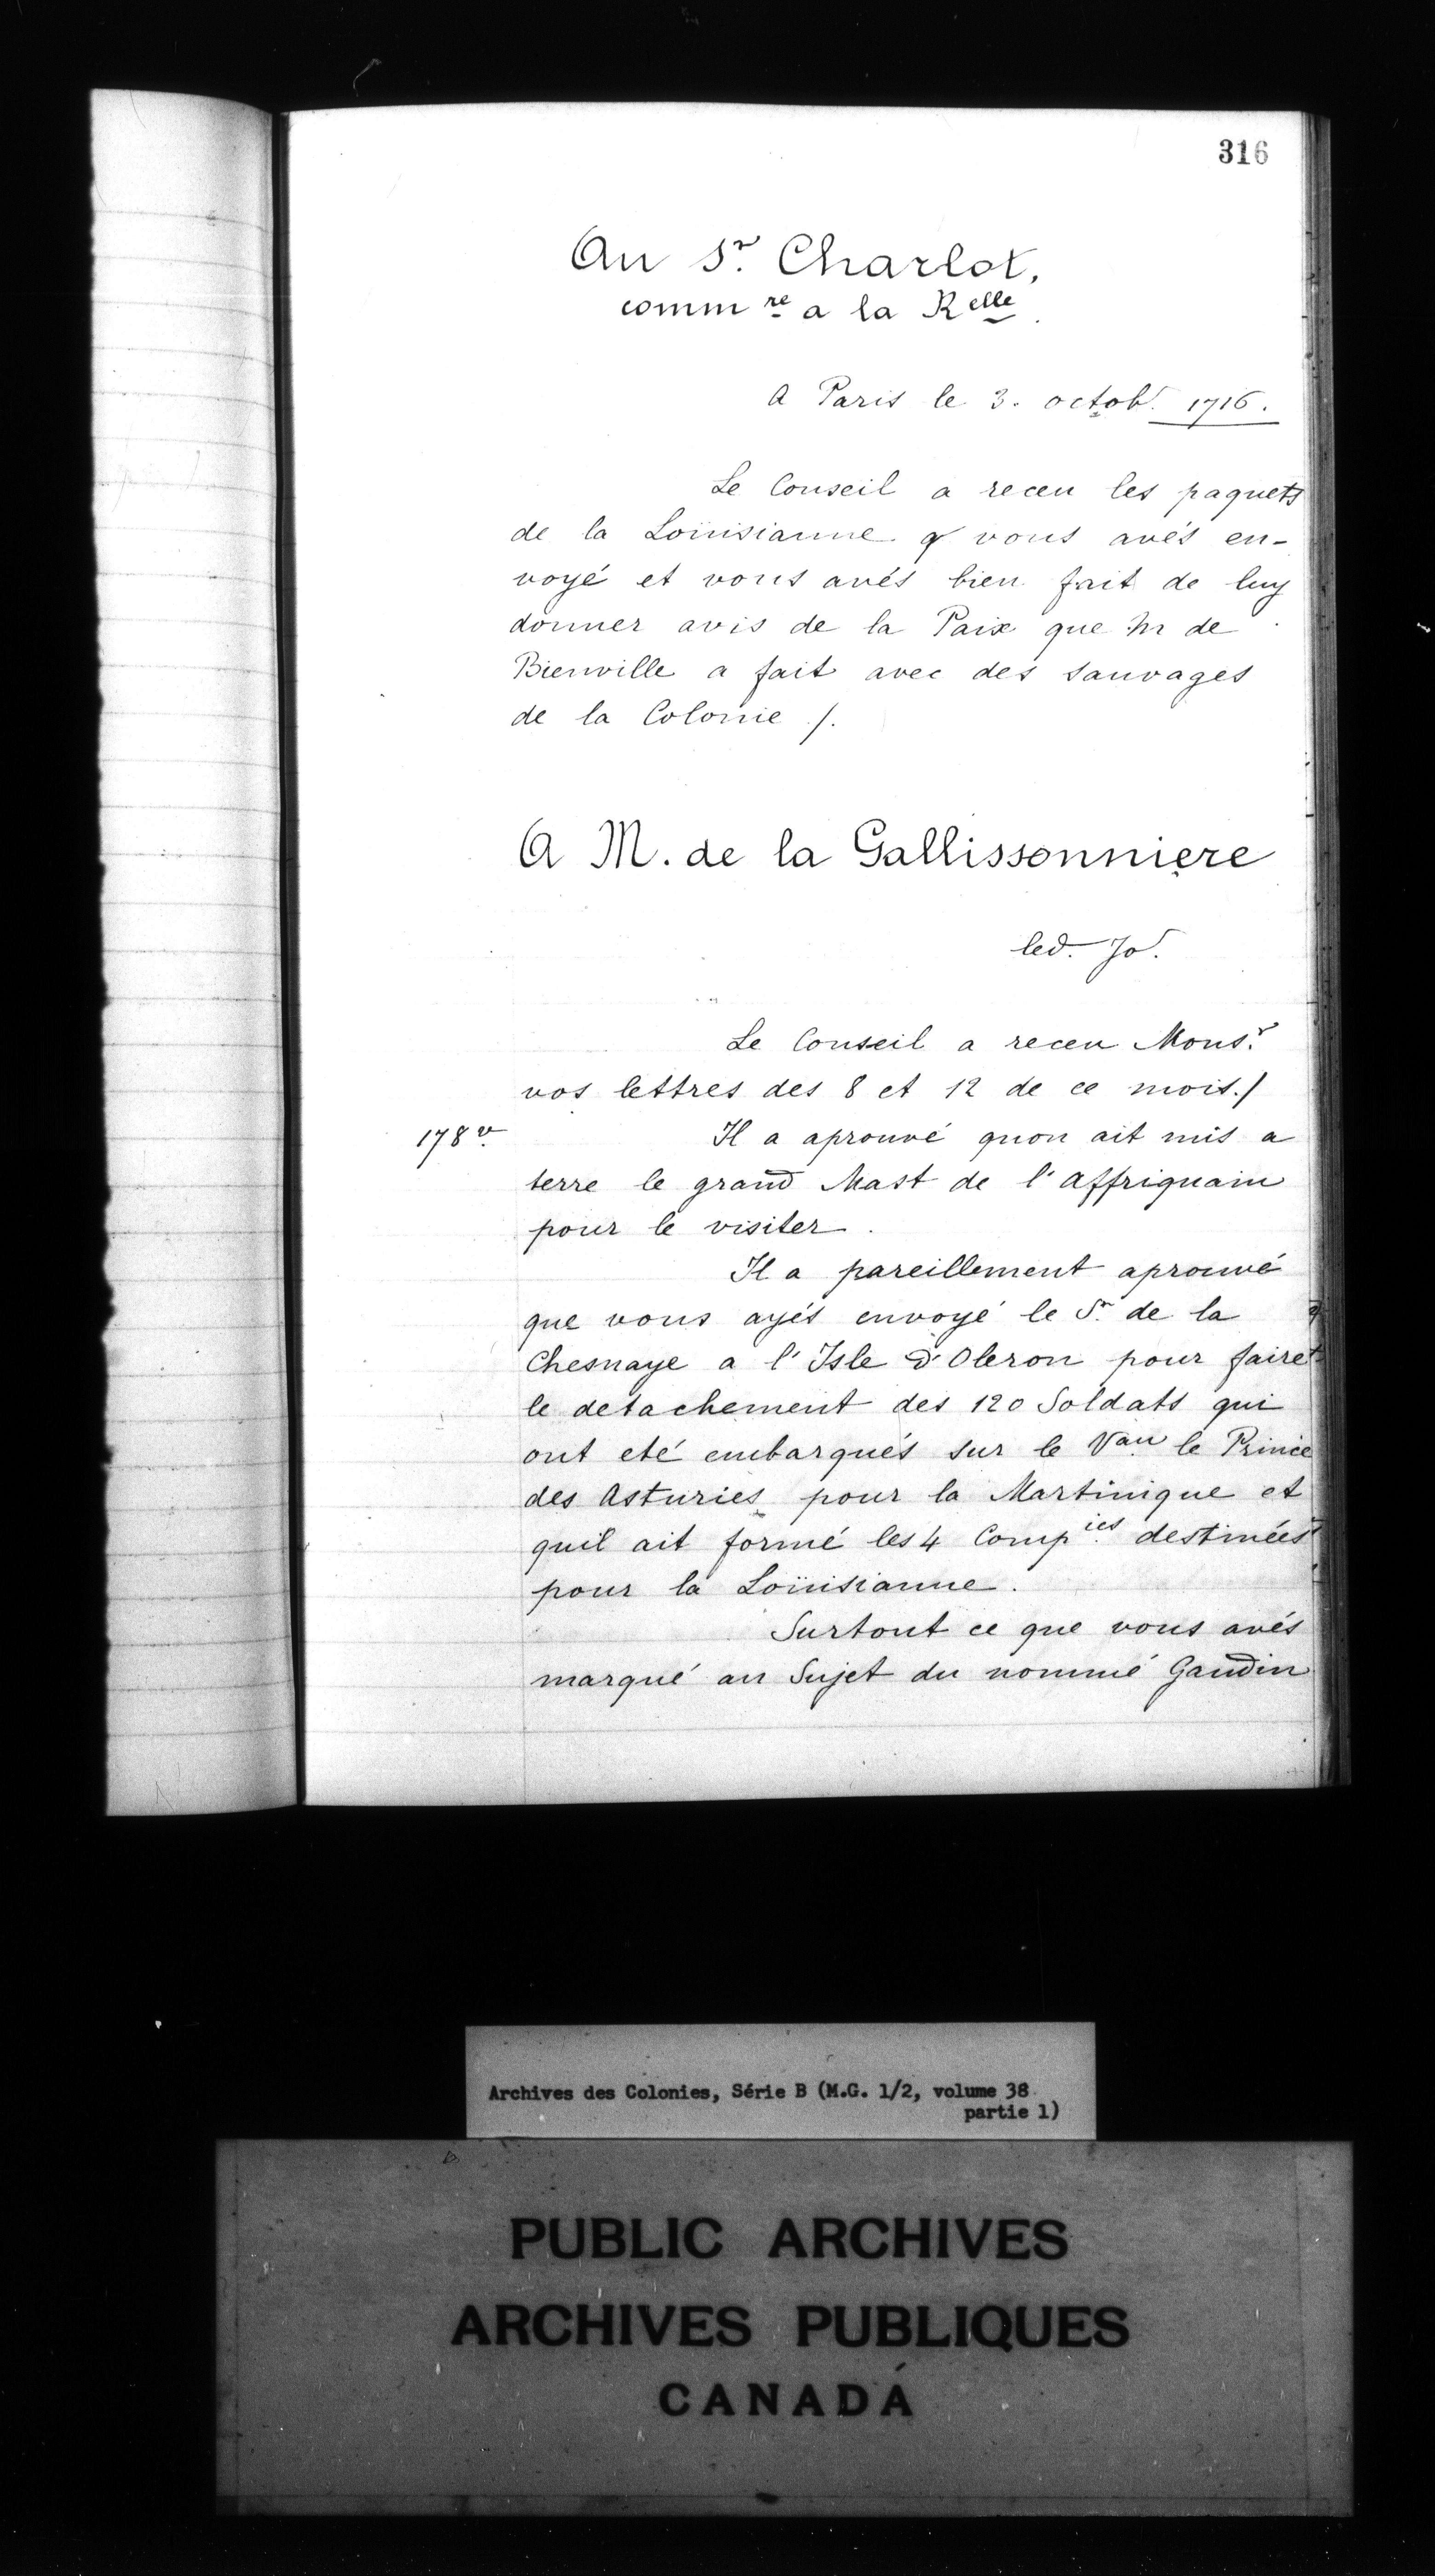 316
Au Sr. Charlot,
commre a la Relle.
A Paris le 3. octobr. 1716.
Le Conseil a receu les paquets
de la Loüisianne q vous avés en-
voyé et vous avés bien fait de luy
donner avis de la Paix que M de
Bienville a fait avec des sauvages
de la Colonie /.
A M. de la Gallissonniere
led. Jor.
Le Conseil a receu Monsr.
vos lettres des 8 et 12 de ce mois./
178 v.
Il a aprouvé quon ait mis a
terre le grand Mast de l'affriquain
pour le visiter.
Il a pareillement aprouvé
que vous ayés envoyé le Sr. de la
Chesnaye a l'Isle d'Oleron pour faire
le detachement des 120 Soldats qui
ont eté embarqués sur le Vau le Prince
des Asturies pour la Martinique et
quil ait formé les 4 Compies. destinées
pour la Loüisianne.
Surtout ce que vous avés
marqué au Sujet du nommé Gaudin
Archives des Colonies, Série B (M.G. 1/2, volume 38
partie 1)
PUBLIC ARCHIVES
ARCHIVES PUBLIQUES
CANADA